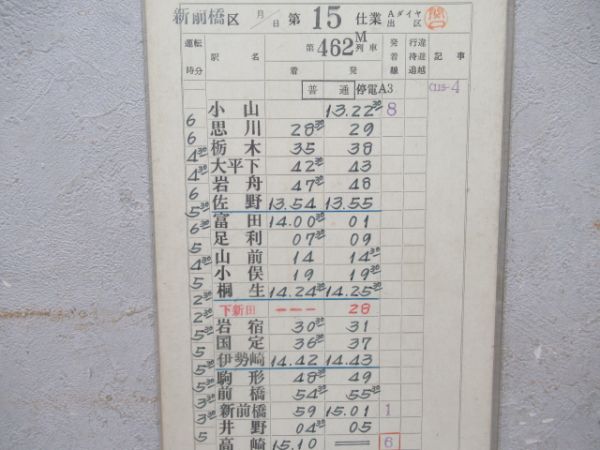 新前橋区 月/日 第15仕業 Aダイヤ出区
運転時分 駅名 第462M列車 着 発 発着線 行違待避追越 記事
普通 停電A3 C115-4
小山 13.22³⁰ 8
6
思川 28³⁰ 29
6
栃木 35 38
4³⁰
大平下 42³⁰ 43
4³⁰
岩舟 47³⁰ 48
6
佐野 13.54 13.55
5³⁰
富田 14.00³⁰ 01
6³⁰
足利 07³⁰ 09
5
山前 14 14³⁰
4³⁰
小俣 19 19³⁰
5
桐生 14.24³⁰ 14.25³⁰
2³⁰
下新田 --- 28
2³⁰
岩宿 30³⁰ 31
5³⁰
国定 36³⁰ 37
5
伊勢崎 14.42 14.43
5³⁰
駒形 48³⁰ 49
5³⁰
前橋 54³⁰ 55³⁰
3³⁰
新前橋 59 15.01 1
3³⁰
井野 04³⁰ 05
5
高崎 15.10 6